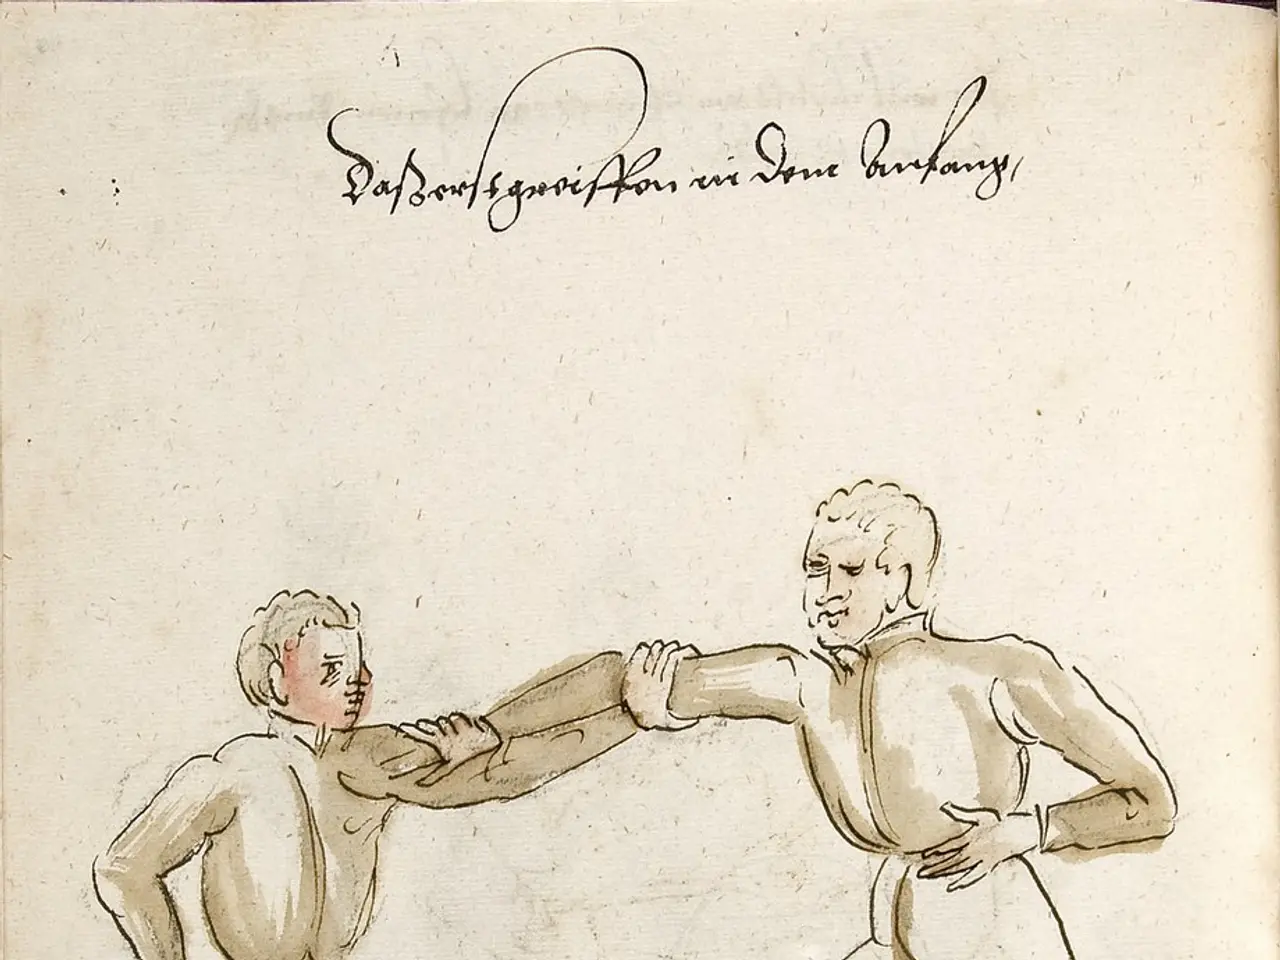 Daß erst greiffen in dem Anfang,